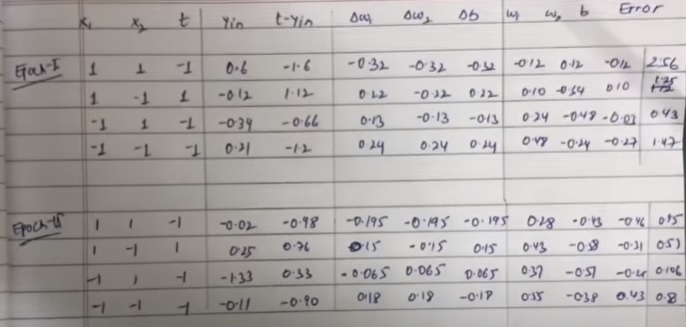 x₁ x₂ t yin t-yin Δw₁ Δw₂ Δb w₁ w₂ b Error
Epoch-I 1 1 -1 0.6 -1.6 -0.32 -0.32 -0.32 -0.12 0.12 -0.12 2.56
1 -1 1 -0.12 1.12 0.22 -0.22 0.22 0.10 -0.34 0.10 1.25
-1 1 -1 -0.34 -0.66 0.13 -0.13 -0.13 0.24 -0.48 -0.03 0.43
-1 -1 -1 0.21 -1.2 0.24 0.24 0.24 0.48 -0.24 -0.27 1.47
Epoch-II 1 1 -1 -0.02 -0.98 -0.195 -0.195 -0.195 0.28 -0.43 -0.46 0.95
1 -1 1 0.25 0.76 0.15 -0.15 0.15 0.43 -0.58 -0.31 0.57
-1 1 -1 -1.33 0.33 -0.065 0.065 0.065 0.37 -0.51 0.106
-1 -1 -1 -0.11 -0.90 0.18 0.18 -0.18 0.55 -0.38 0.43 0.8